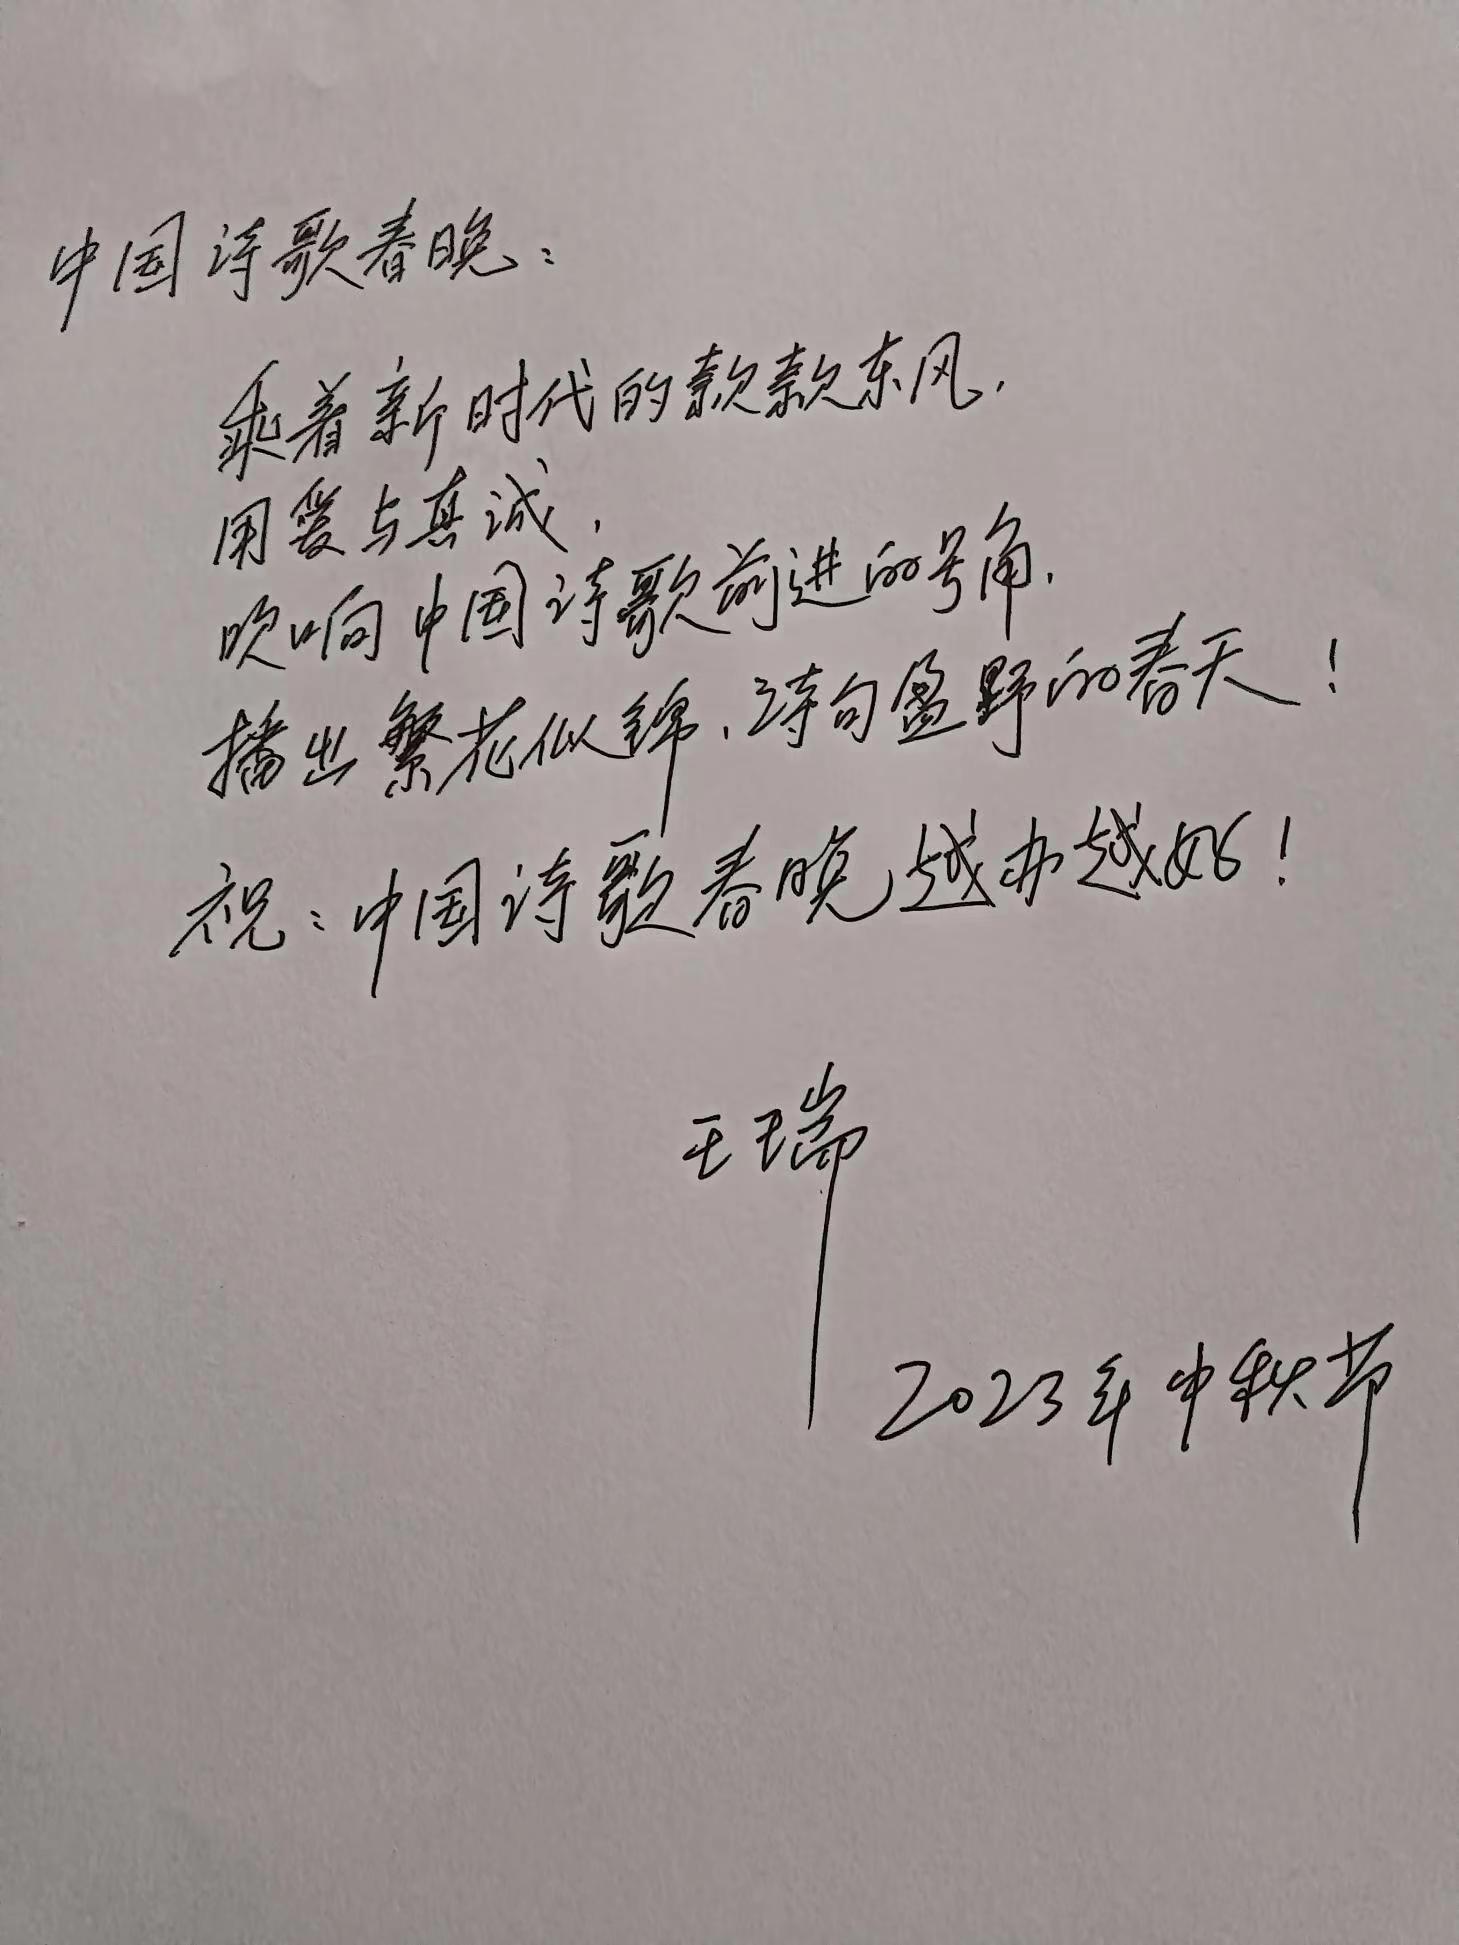 中国诗歌春晚：
乘着新时代的款款东风，
用爱与真诚，
吹响中国诗歌前进的号角，
播出繁花似锦，诗句盈野的春天！
祝：中国诗歌春晚越办越好！
王瑞
2023年中秋节